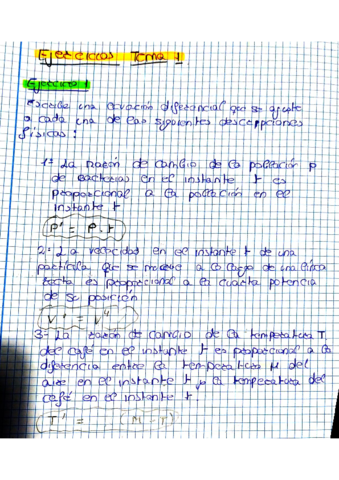 Ejercicios Tema 1
Ejercicio 1
Escribe una ecuación diferencial que se ajuste
a cada una de las siguientes descripciones
físicas:
1= La razón de cambio de la población P
de bacterias en el instante t es
proporcional a la población en el
instante t
P' = P · t
2= La velocidad en el instante t de una
partícula que se mueve a lo largo de una línea
recta es proporcional a la cuarta potencia
de su posición
V' = V⁴
3= La razón de cambio de la temperatura T
del café en el instante t es proporcional a la
diferencia entre la temperatura M del
aire en el instante t y la temperatura del
café en el instante t
T' = (M - T)